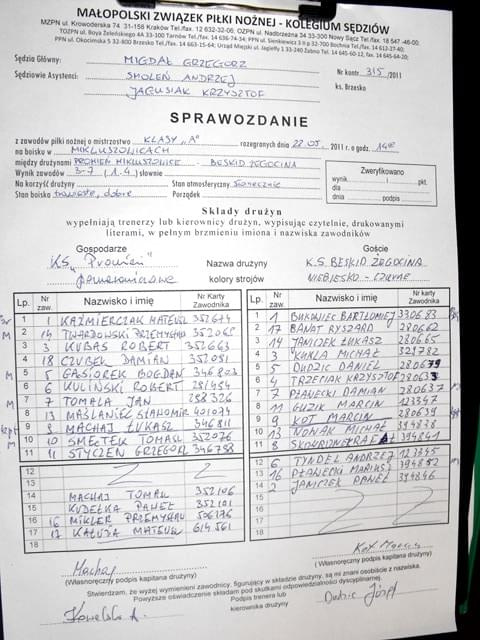 MAŁOPOLSKI ZWIĄZEK PIŁKI NOŻNEJ - KOLEGIUM SĘDZIÓW
MZPN ul. Krowoderska 74 31-158 Kraków Tel./fax. 12 632-66-02 OZPN ul. Nadbrzeżna 34 33-300 Nowy Sącz Tel./fax. 18 547-46-00
TOZPN ul. Boya Żeleńskiego 4A 33-300 Tarnów Tel./fax. 14 636-74-34 PPN ul. Sienkiewicza 3 32-700 Bochnia Tel./fax. 14 612-27-40
PPN ul. Okocimska 5 32-800 Brzesko Tel./fax. 14 663-15-64 Urząd Miejski ul. Jagiełły 1 33-240 Żabno
Sędzia Główny: MIGDAŁ GRZEGORZ
Sędziowie Asystenci: SMOLEŃ ANDRZEJ Nr kontr. 315/2011
JAGUSIAK KRZYSZTOF ks. Brzesko
SPRAWOZDANIE
z zawodów piłki nożnej o mistrzostwo KLASY "A" rozegranych dnia 22.05. 2011 r. o godz.
na boisku w MIKLUSZOWICACH
między drużynami PROMIEŃ MIKLUSZOWICE - BESKID ŻEGOCINA
Wynik zawodów 3-7 (1.4) słownie
Na korzyść drużyny Stan atmosferyczny słonecznie
Stan boiska trawiaste, dobre Porządek
Zweryfikowano
wynik : pkt.
dla
dnia podpis
Składy drużyn
wypełniają trenerzy lub kierownicy drużyn, wypisując czytelnie, drukowanymi
literami, w pełnym brzmieniu imiona i nazwiska zawodników
Gospodarze Goście
KS. "Promień" Nazwa drużyny K.S. BESKID ŻEGOCINA
kolory strojów NIEBIESKO - CZARNE
Lp. Nr zaw. Nazwisko i imię Nr Karty Zawodnika
1 1 KAŹMIERCZAK MATEUSZ 352674
2 14 TWARDOWSKI PRZEMYSŁAW
3 3 KUBAS ROBERT 352663
4 18 CZUBEK DAMIAN 352081
5 5 GĄSIOREK BOGDAN 346803
6 6 KULIŃSKI ROBERT 281454
7 7 TOMALA JAN 288326
8 13 MAŚLANIEC SŁAWOMIR 401074
9 9 MACHAJ ŁUKASZ 346811
10 10 SMĘTEK TOMASZ 352076
11 11 STYCZEŃ GRZEGORZ 346798
12
13
14 MACHAJ TOMASZ 352106
15 KUDEŁKA PAWEŁ 352101
16 16 MIKLER PRZEMYSŁAW 506176
17 17 KAŁUŻA MATEUSZ 614561
18
Lp. Nr zaw. Nazwisko i imię Nr Karty Zawodnika
1 1 BUKOWIEC BARTŁOMIEJ 330683
2 17 BANAT RYSZARD 280662
3 14 JANICZEK ŁUKASZ 280665
4 3 KUKLA MICHAŁ 329782
5 5 DUDZIC DANIEL 280679
6 4 TRZEPIAK KRZYSZTOF
7 7 PŁAWECKI DAMIAN 280637
8 11 GUZIK MARCIN 123347
9 9 KOT MARCIN 280639
10 13 NOWAK MICHAŁ 394838
11 8 394841
12 6 TYNDEL ANDRZEJ 123345
13 16 PŁAWECKI MARIUSZ 394852
14 2 JANICZEK PAWEŁ 394846
15
16
17
18
Machaj Kot Marcin
(Własnoręczny podpis kapitana drużyny) (Własnoręczny podpis kapitana drużyny)
Stwierdzam, że wyżej wymienieni zawodnicy, figurujący w składzie drużyny, są mi znani osobiście z nazwiska.
Powyższe oświadczenie składam pod skutkami odpowiedzialności dyscyplinarnej.
Podpis trenera lub
kierownika drużyny Dudzic Józef